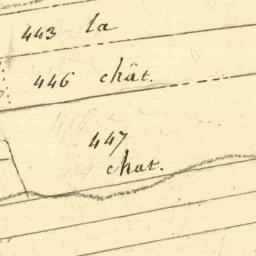 443 la
446 chât.
447
chat.